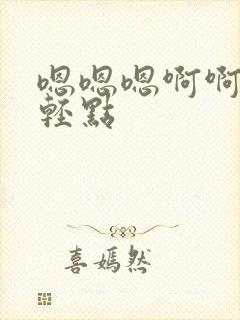 嗯嗯嗯啊啊
輕點
喜嫣然